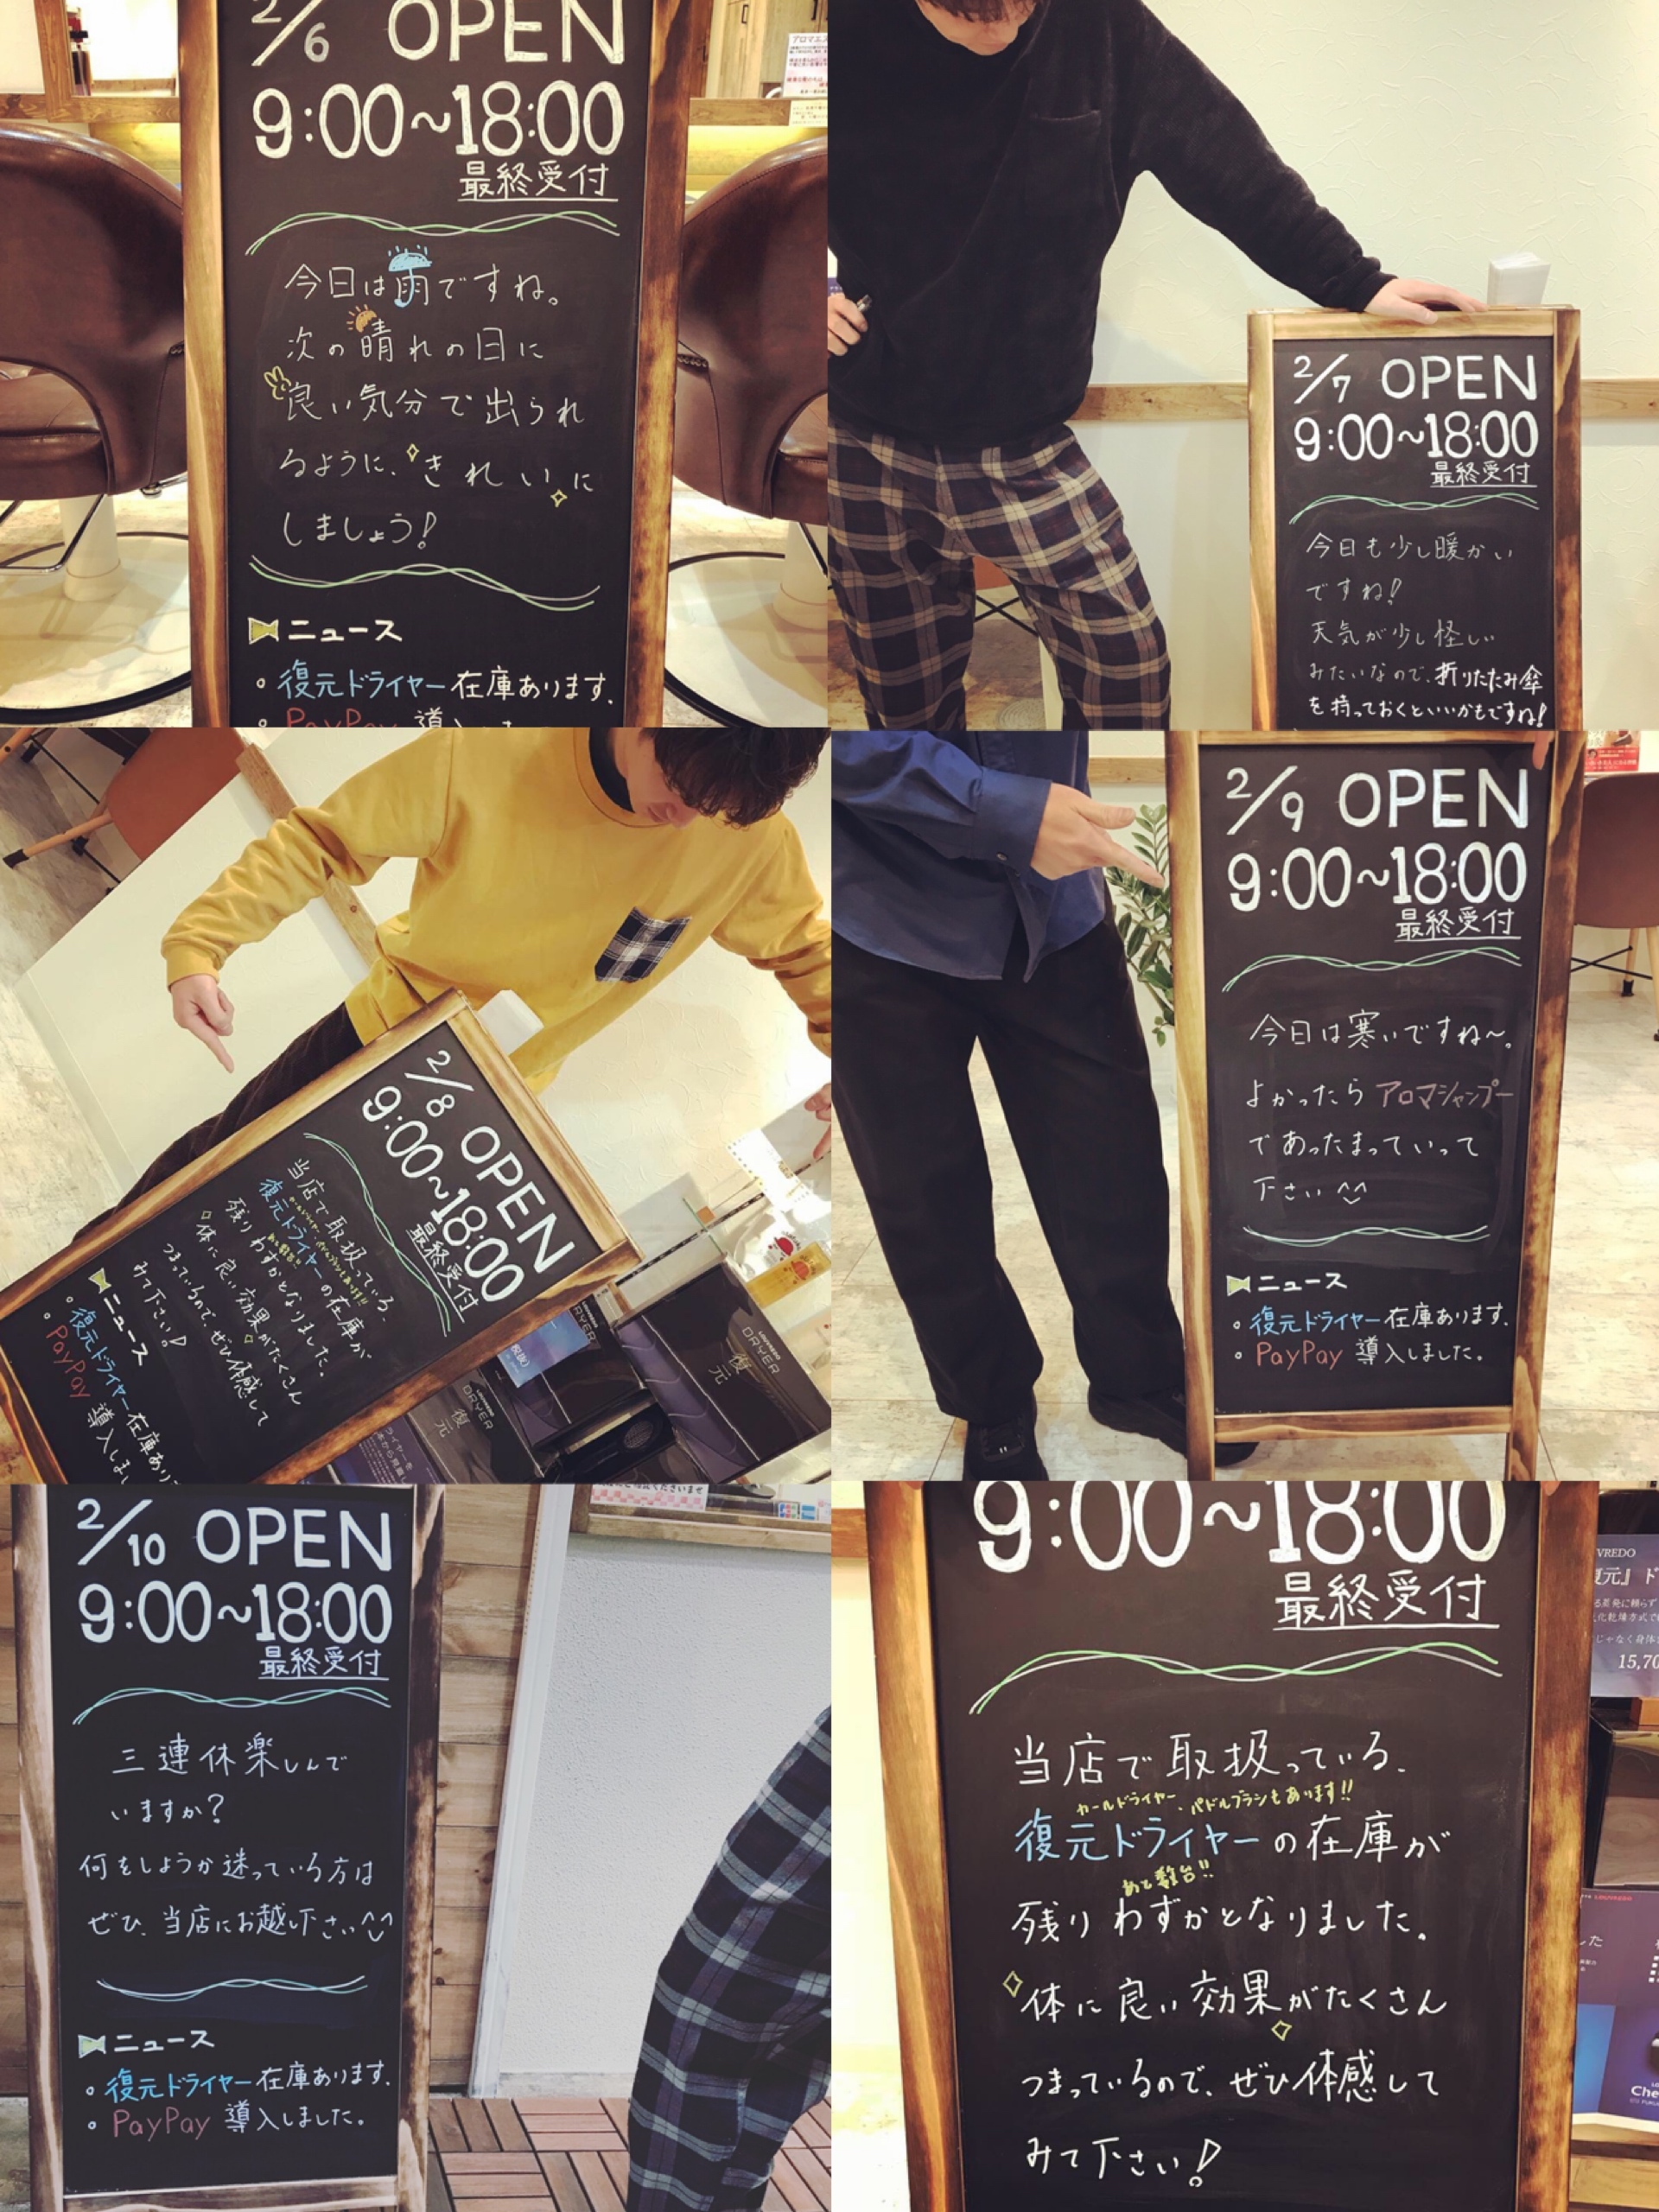 2/6 OPEN
9:00~18:00
最終受付
今日は雨ですね。
次の晴れの日に
良い気分で出られ
るように、きれいに
しましょう!
ニュース
。復元ドライヤー在庫あります。
。PayPay 導入しま
2/7 OPEN
9:00~18:00
最終受付
今日も少し暖かい
ですね!
天気が少し怪しい
みたいなので、折りたたみ傘
を持っておくといいかもですね!
2/8 OPEN
9:00~18:00
最終受付
当店で取扱っている、
カールドライヤー、パドルブラシもあります!!
復元ドライヤーの在庫が
あと数台!!
残りわずかとなりました。
体に良い効果がたくさん
つまっているので、ぜひ体感して
みて下さい!
ニュース
。復元ドライヤー在庫あり
。PayPay 導入しまし
LOUVREDO
DRYER
復元
DRYER
復元
2/9 OPEN
9:00~18:00
最終受付
今日は寒いですね〜。
よかったら アロマシャンプー
であったまっていって
下さい^^
ニュース
。復元ドライヤー在庫あります。
。PayPay 導入しました。
2/10 OPEN
9:00~18:00
最終受付
三連休楽しんで
いますか?
何をしようか迷っている方は
ぜひ、当店にお越し下さい^^
ニュース
。復元ドライヤー在庫あります。
。PayPay 導入しました。
9:00~18:00
最終受付
当店で取扱っている、
カールドライヤー、パドルブラシもあります!!
復元ドライヤーの在庫が
あと数台!!
残りわずかとなりました。
体に良い効果がたくさん
つまっているので、ぜひ体感して
みて下さい!
VREDO
復元』ド
15,70
Che